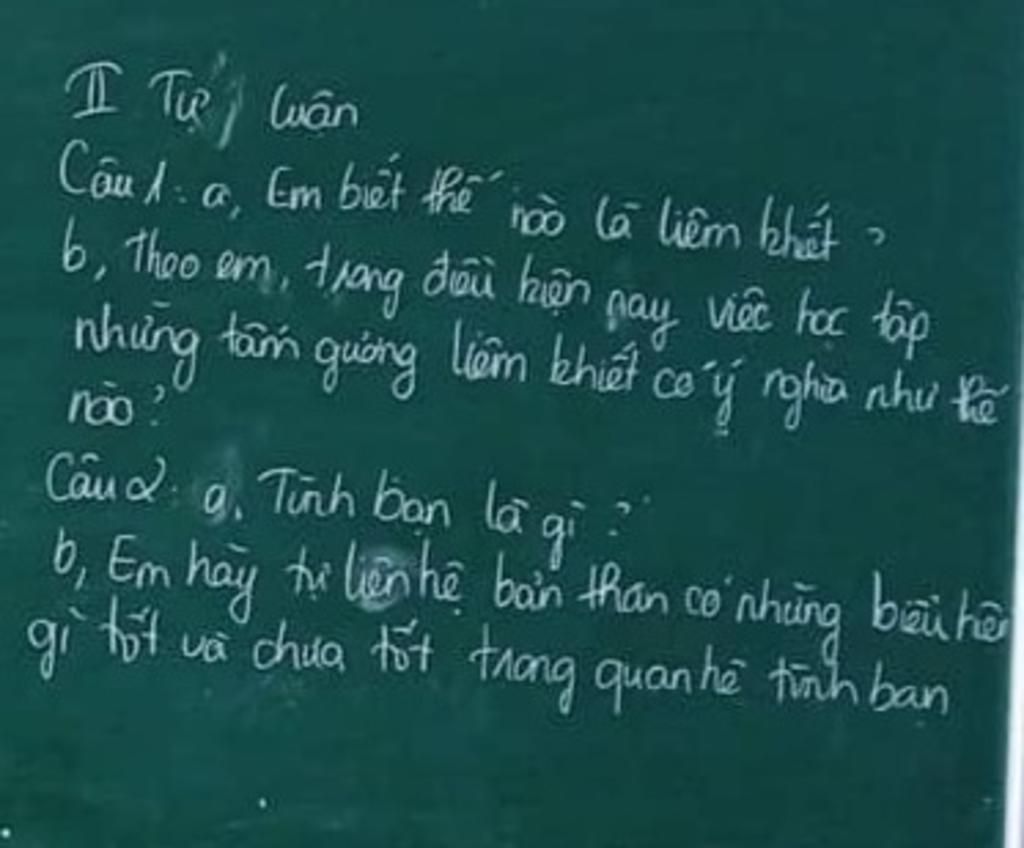 II Tự luận
Câu 1: a, Em biết thế nào là liêm khiết?
b, Theo em, trong điều kiện nay việc học tập
những tấm gương liêm khiết có ý nghĩa như thế
nào?
Câu 2: a, Tình bạn là gì?
b, Em hãy tự liên hệ bản thân có những biểu hiện
gì tốt và chưa tốt trong quan hệ tình bạn